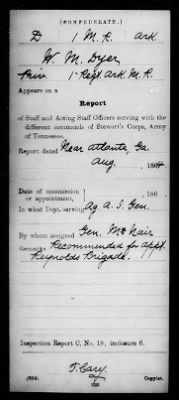 (CONFEDERATE.)
D 1 M. R. Ark
W. M. Dyer
Priv 1" Regt. Ark M. R.
Appears on a
Report
of Staff and Acting Staff Officers serving with the
different commands of Stewart's Corps, Army
of Tennessee.
Report dated Near Atlanta, Ga.
Aug, 1864.
Date of commission
or appointment, , 186 .
In what Dept. serving Ag A. I. Gen.
By whom assigned Gen. McNair
Remarks Recommended for appt.
Reynolds Brigade.
Inspection Report C, No. 18; inclosure 6.
T. Cary
(634) Copyist.